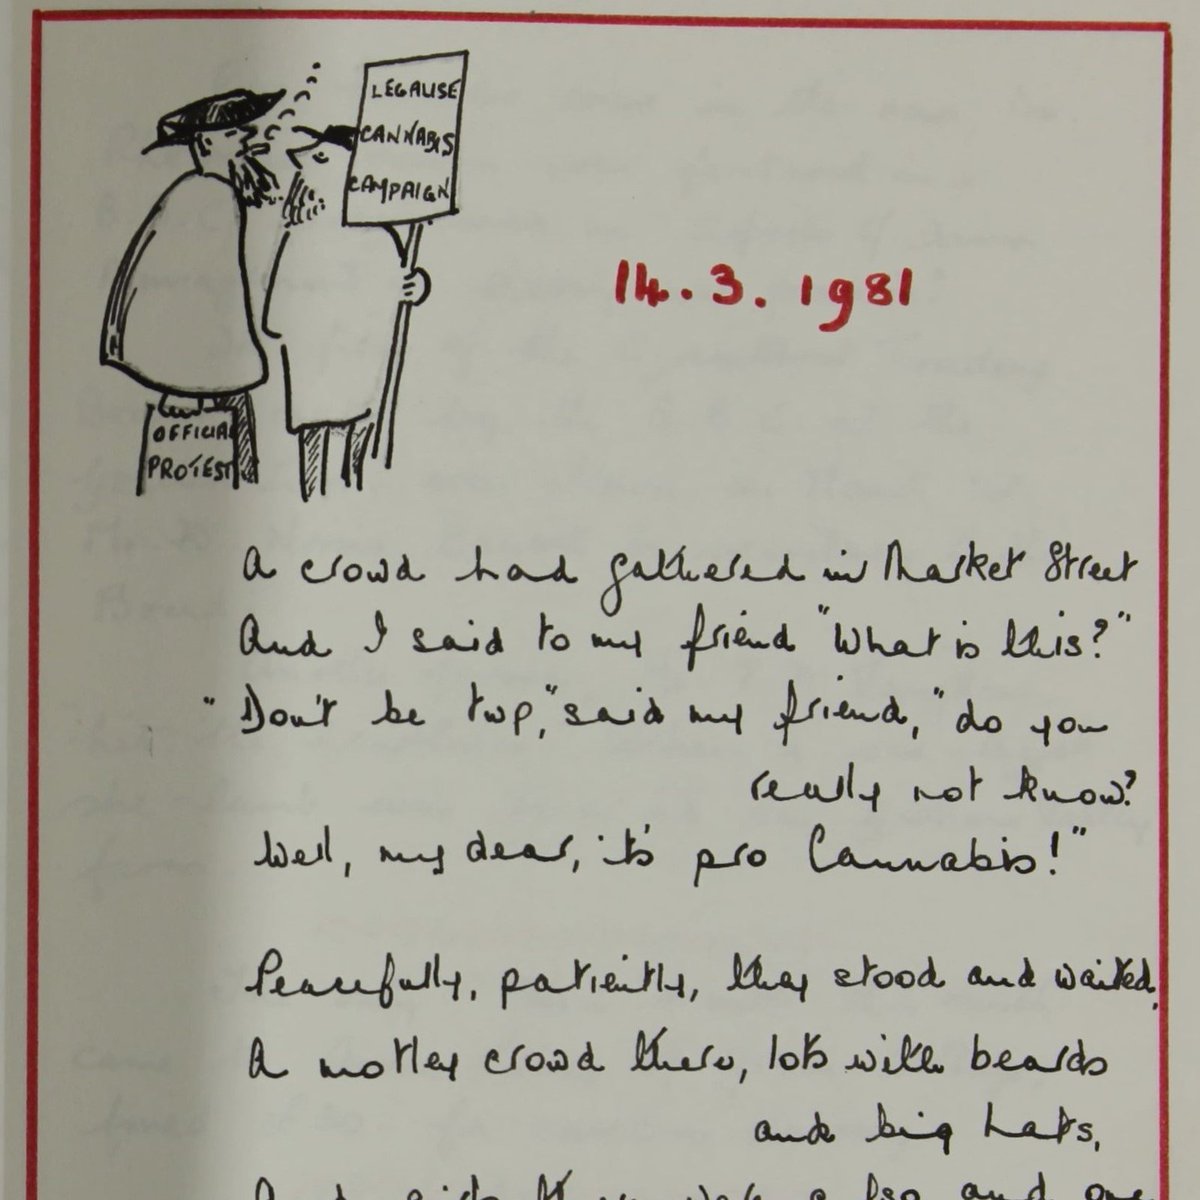 LEGALISE
CANNABIS
CAMPAIGN
14.3.1981
OFFICIAL
PROTEST
A crowd had gathered in Market Street
And I said to my friend "What is this?"
"Don't be twp," said my friend, "do you
really not know?
Well, my dear, it's pro Cannabis!"
Peacefully, patiently, they stood and waited,
A motley crowd there, lots with beards
and big hats,
And girls there were also and one